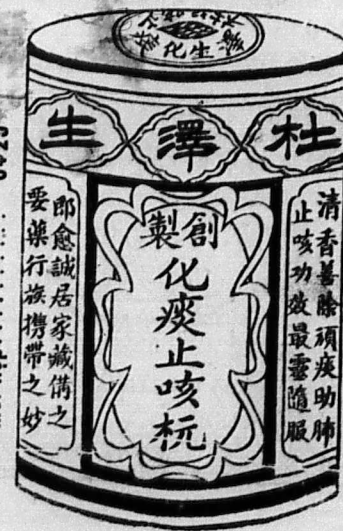 化生
杜澤生
創製
化痰止咳杬
清香善除頑痰助肺
止咳功效最靈隨服
即愈誠居家藏備之
要藥行旅携帶之妙